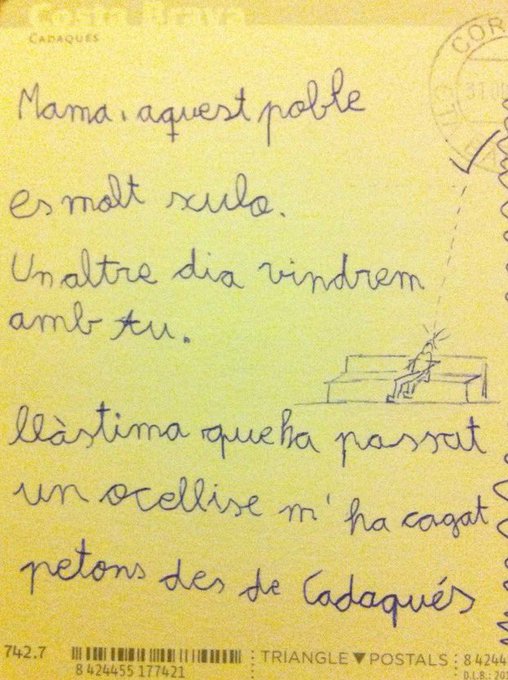 Costa Brava
CADAQUÉS
COR
31
Mama, aquest poble
es molt xulo.
Un altre dia vindrem
amb tu.
llàstima que ha passat
un ocell i se m' ha cagat
petons des de Cadaqués
742.7
8 424455 177421
TRIANGLE▼POSTALS
8 4244
D.L.B.: 20